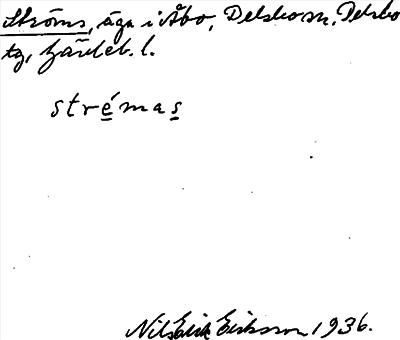 Ströms, äga i Åbo, Delsbo sn, Delsbo
tg, Gävleb. l.
strémas
Nils Erik Eriksson 1936.